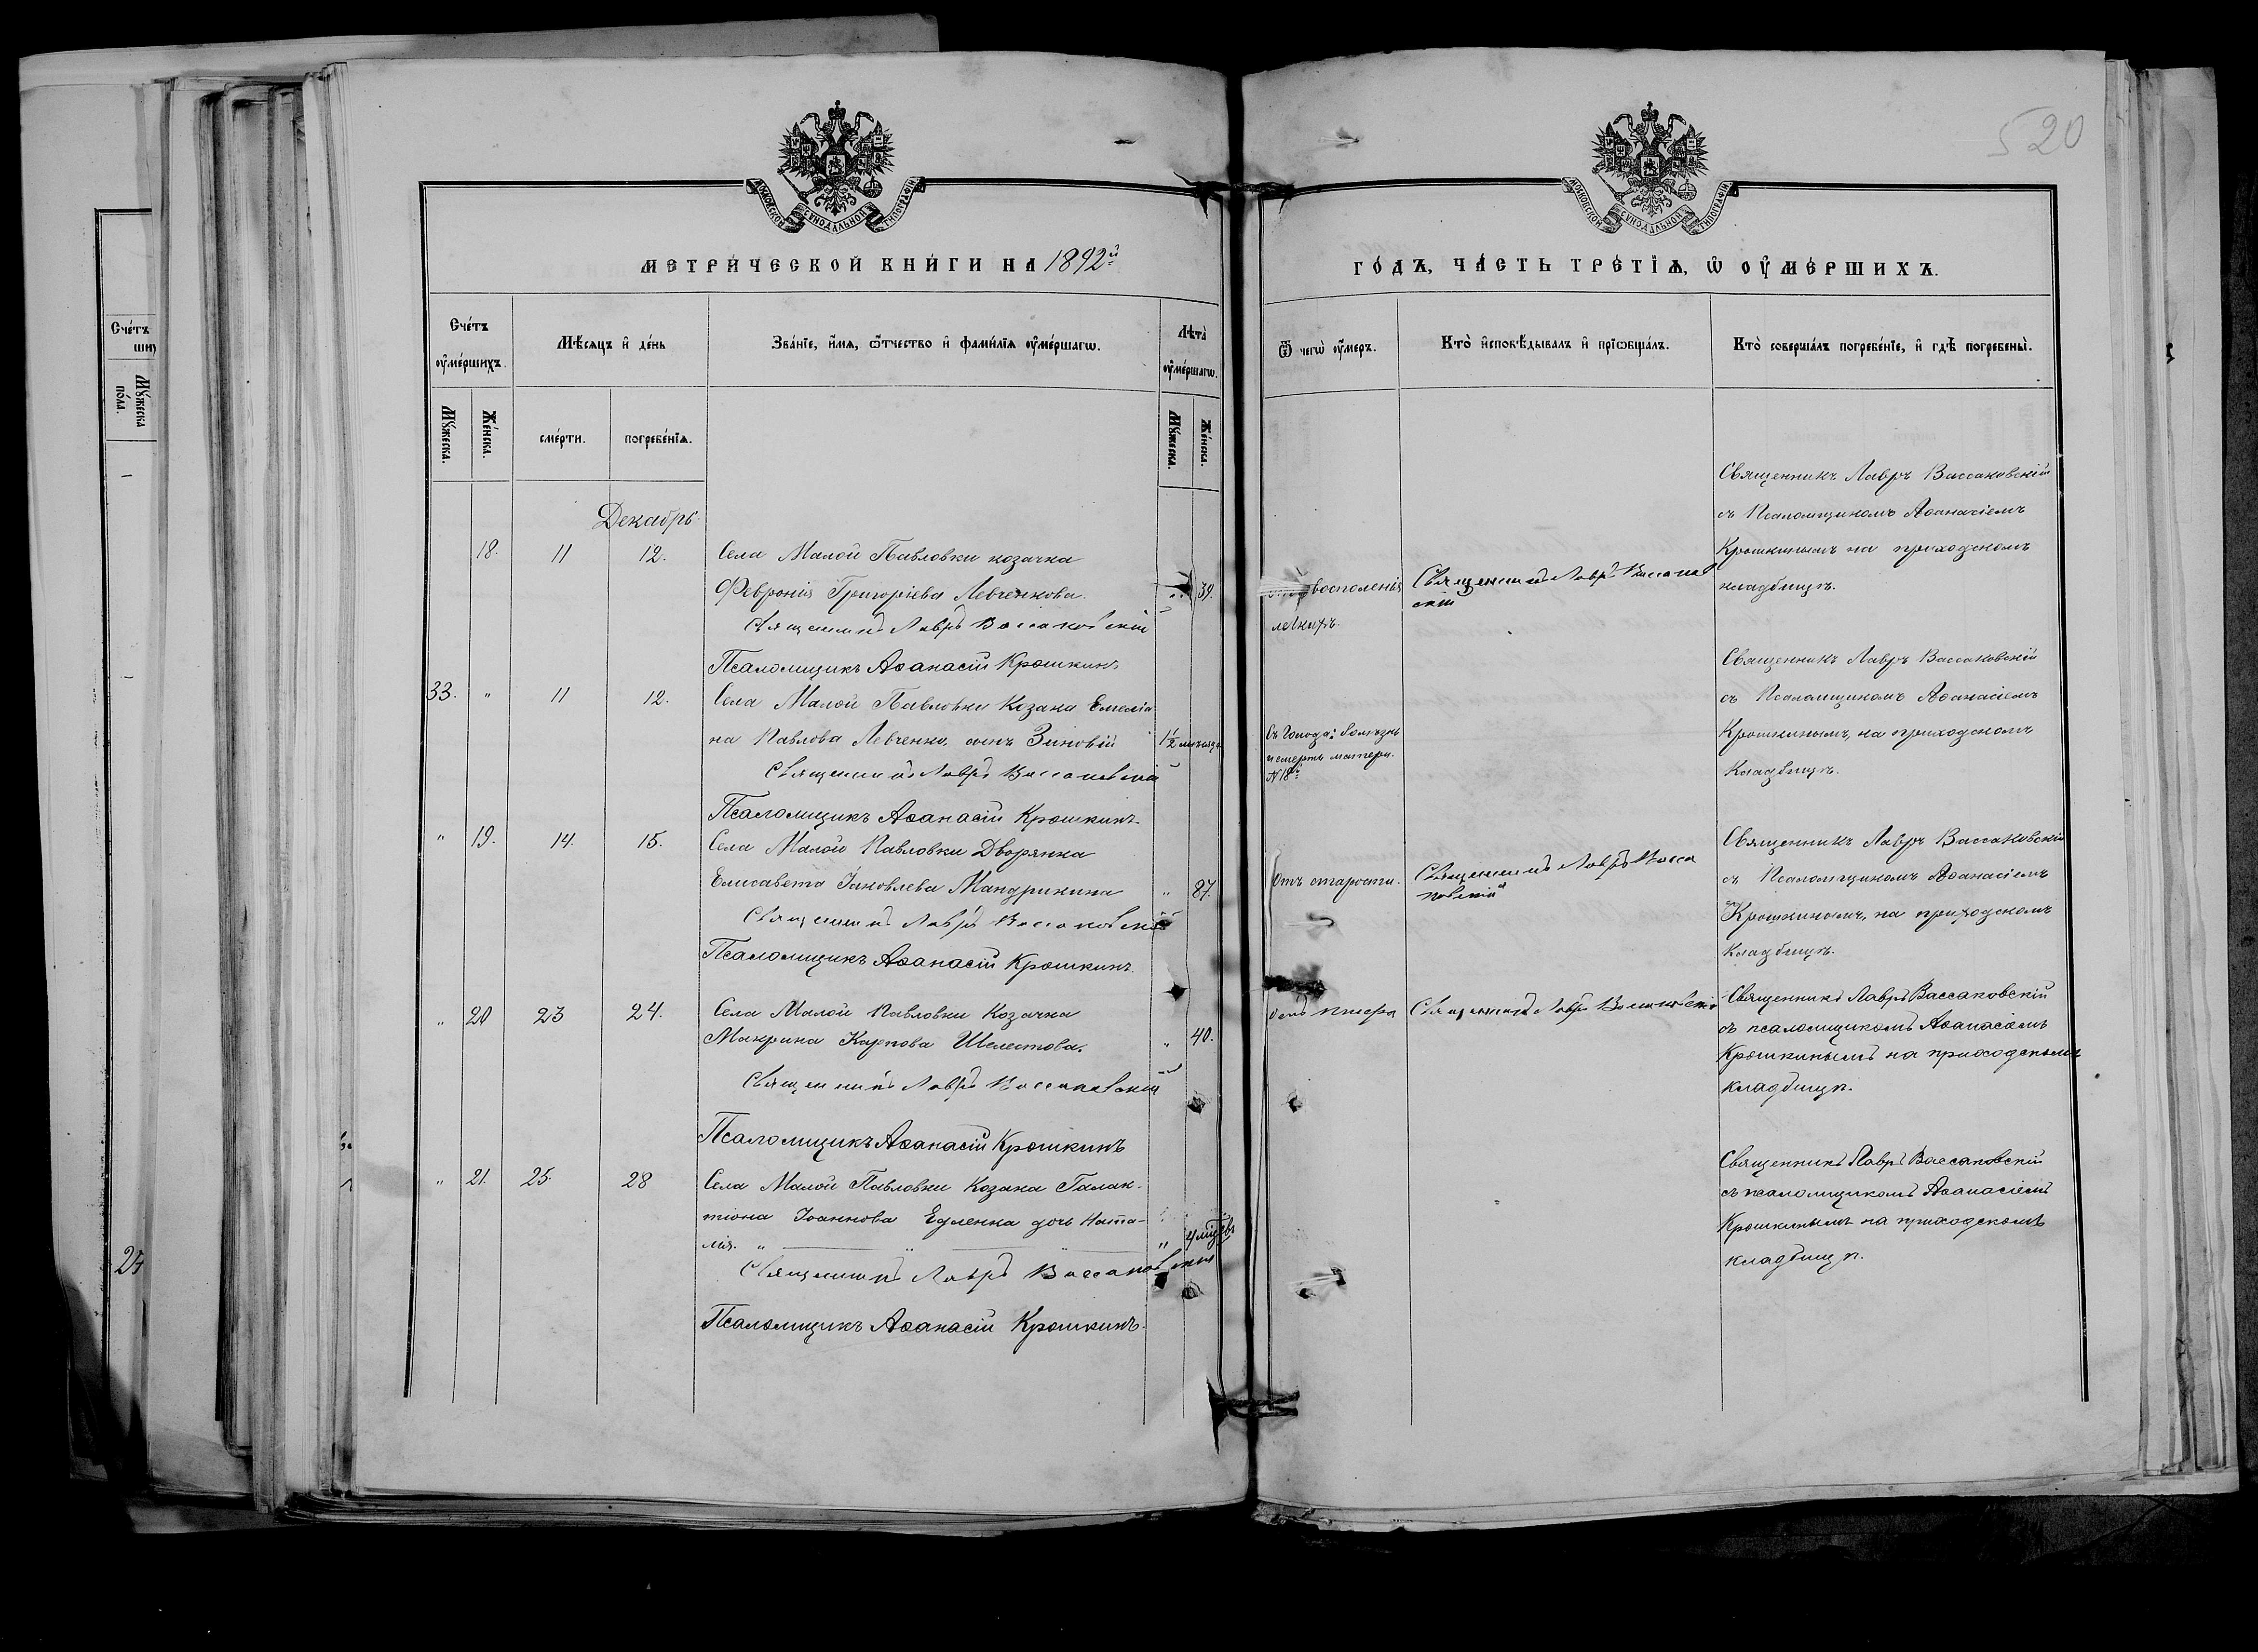 520
МОСКОВСКОЙ СѴНОДАЛЬНОЙ ТИПОГРАФІИ
МОСКОВСКОЙ СѴНОДАЛЬНОЙ ТИПОГРАФІИ
МЕТРИ́ЧЕСКОЙ КНИ́ГИ НА 1892й
ГО́ДЪ, ЧА́СТЬ ТРЕ́ТІѦ, Ѡ҆ ОУ҆МЕ́РШИХЪ.
Сче́тъ оу҆ме́ршихъ.
Мѣ́сяцъ и҆ де́нь
Зва́нїе, и҆́мѧ, ѻ҆́тчество и҆ фами́лїѧ оу҆ме́ршагѡ.
Лѣта̀ оу҆ме́ршагѡ.
Ѿ чегѡ̀ оу҆́меръ.
Кто̀ и҆сповѣ́дывалъ и҆ прїѡбща́лъ.
Кто̀ соверша́лъ погребе́нїе, и҆ гдѣ̀ погребены̀.
Мꙋ́жеска.
Же́нска.
сме́рти.
погребе́нїѧ.
Мꙋ́жеска.
Же́нска.
Декабрь
18. 11 12. Села Малой Павловки козачка
Феврония Григоріева Левченкова. " 39.
Священникъ Лавръ Вассаковскій
Псаломщикъ Аѳанасій Крошкинъ
восполенія
легкихъ.
Священникъ Лавръ Вассаков
скій
Священникъ Лавръ Вассаковскій
съ Псаломщикомъ Аѳанасіемъ
Крошкинымъ на приходскомъ
кладбищѣ.
33. " 11 12. Села Малой Павловки Козака Емеліа
на Павлова Левченко, сынъ Зиновій 1½ мѣсяца
Священникъ Лавръ Вассаковскій
Псаломщикъ Аѳанасій Крошкинъ.
Съ голода: болѣзнь
и смерть матери.
N 18й
Священникъ Лавръ Вассаковскій
съ Псаломщикомъ Аѳанасіемъ
Крошкинымъ, на приходскомъ
Кладбищѣ.
" 19. 14. 15. Села Малой Павловки Дворянка
Елисавета Іаковлева Мандрикина " 87.
Священникъ Лавръ Вассаковскій
Псаломщикъ Аѳанасій Крошкинъ.
Отъ старости.
Священникъ Лавръ Васса
ковскій
Священникъ Лавръ Вассаковскій
съ Псаломщикомъ Аѳанасіемъ
Крошкиномъ, на приходскомъ
Кладбищѣ.
" 20 23 24. Села Малой Павловки Козачка
Макрина Карпова Шелестова. " 40.
Священникъ Лавръ Вассаковскій
Псаломщикъ Аѳанасій Крошкинъ
Священникъ Лавръ Вассаковскій
Священникъ Лавръ Вассаковскій
съ псаломщикомъ Аѳанасіемъ
Крошкинымъ на приходскомъ
кладбищѣ.
" 21. 25. 28 Села Малой Павловки Козака Галак-
тіона Іоаннова Едленка дочь Ната-
лія. " " " "
Священникъ Лавръ Вассаковскій
Псаломщикъ Аѳанасій Крошкинъ.
Священникъ Лавръ Вассаковскій
съ псаломщикомъ Аѳанасіемъ
Крошкинымъ на приходскомъ
кладбищѣ.